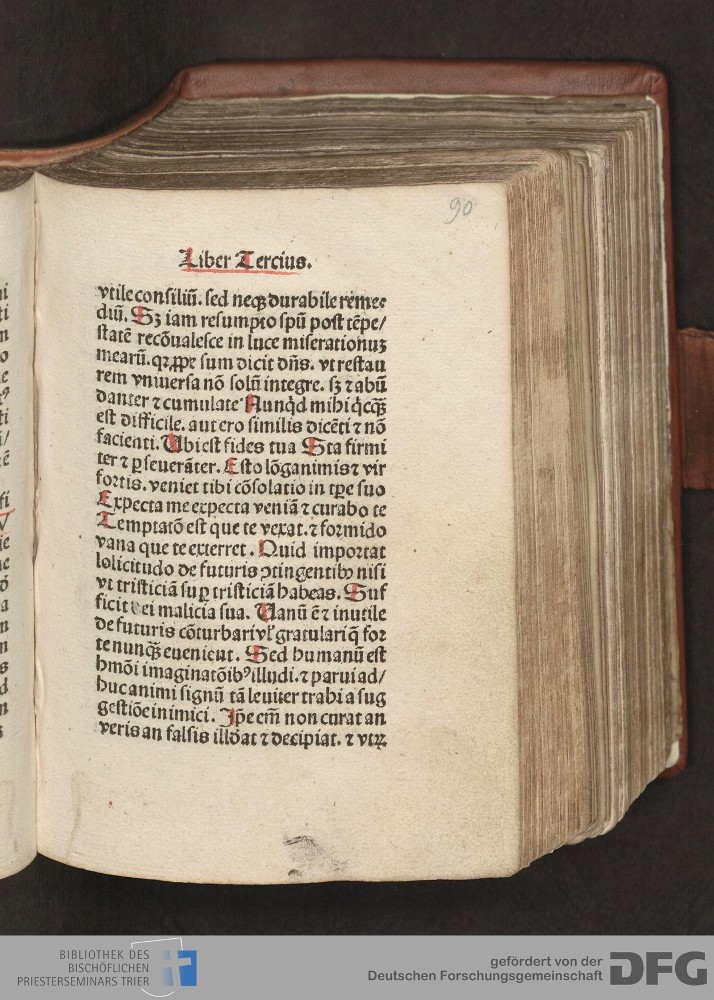 90
Liber Tercius.
vtile consiliū. sed neqꝫ durabile reme⸗
diū. Sꝫ iam resumpto spū post tēpe/
statē recōualesce in luce miserationuꝫ
mearū. qꝛ ꝓpe sum dicit dn̄s. vt restau
rem vniuersa nō solū integre. sꝫ ⁊ abū
danter ⁊ cumulate Nunqd mihi qicqꝫ
est difficile. aut ero similis dicēti ⁊ nō
facienti. Ubi est fides tua Sta firmi
ter ⁊ ꝑseuerāter. Esto lōganimis ⁊ vir
fortis. veniet tibi cōsolatio in tp̄e suo
Expecta me expecta veniā ⁊ curabo te
Temptatō est que te vexat. ⁊ formido
vana que te exterret. Quid importat
solicitudo de futuris ↄtingentibꝫ nisi
vt tristiciā suꝑ tristiciā habeas. Suf
ficit diei malicia sua. Uanū ē ⁊ inutile
de futuris cōturbari vl̕ gratulari q̄ for
te nunqꝫ euenient. Sed humanū est
hmōi imaginatōibꝰ illudi. ⁊ parui ad/
huc animi signū tā leuiter trahi a sug
gestiōe inimici. Ip̄e em̄ non curat an
veris an falsis illdāt ⁊ decipiat. ⁊ vtꝝ
BIBLIOTHEK DES
BISCHÖFLICHEN
PRIESTERSEMINARS TRIER
gefördert von der
Deutschen Forschungsgemeinschaft
DFG